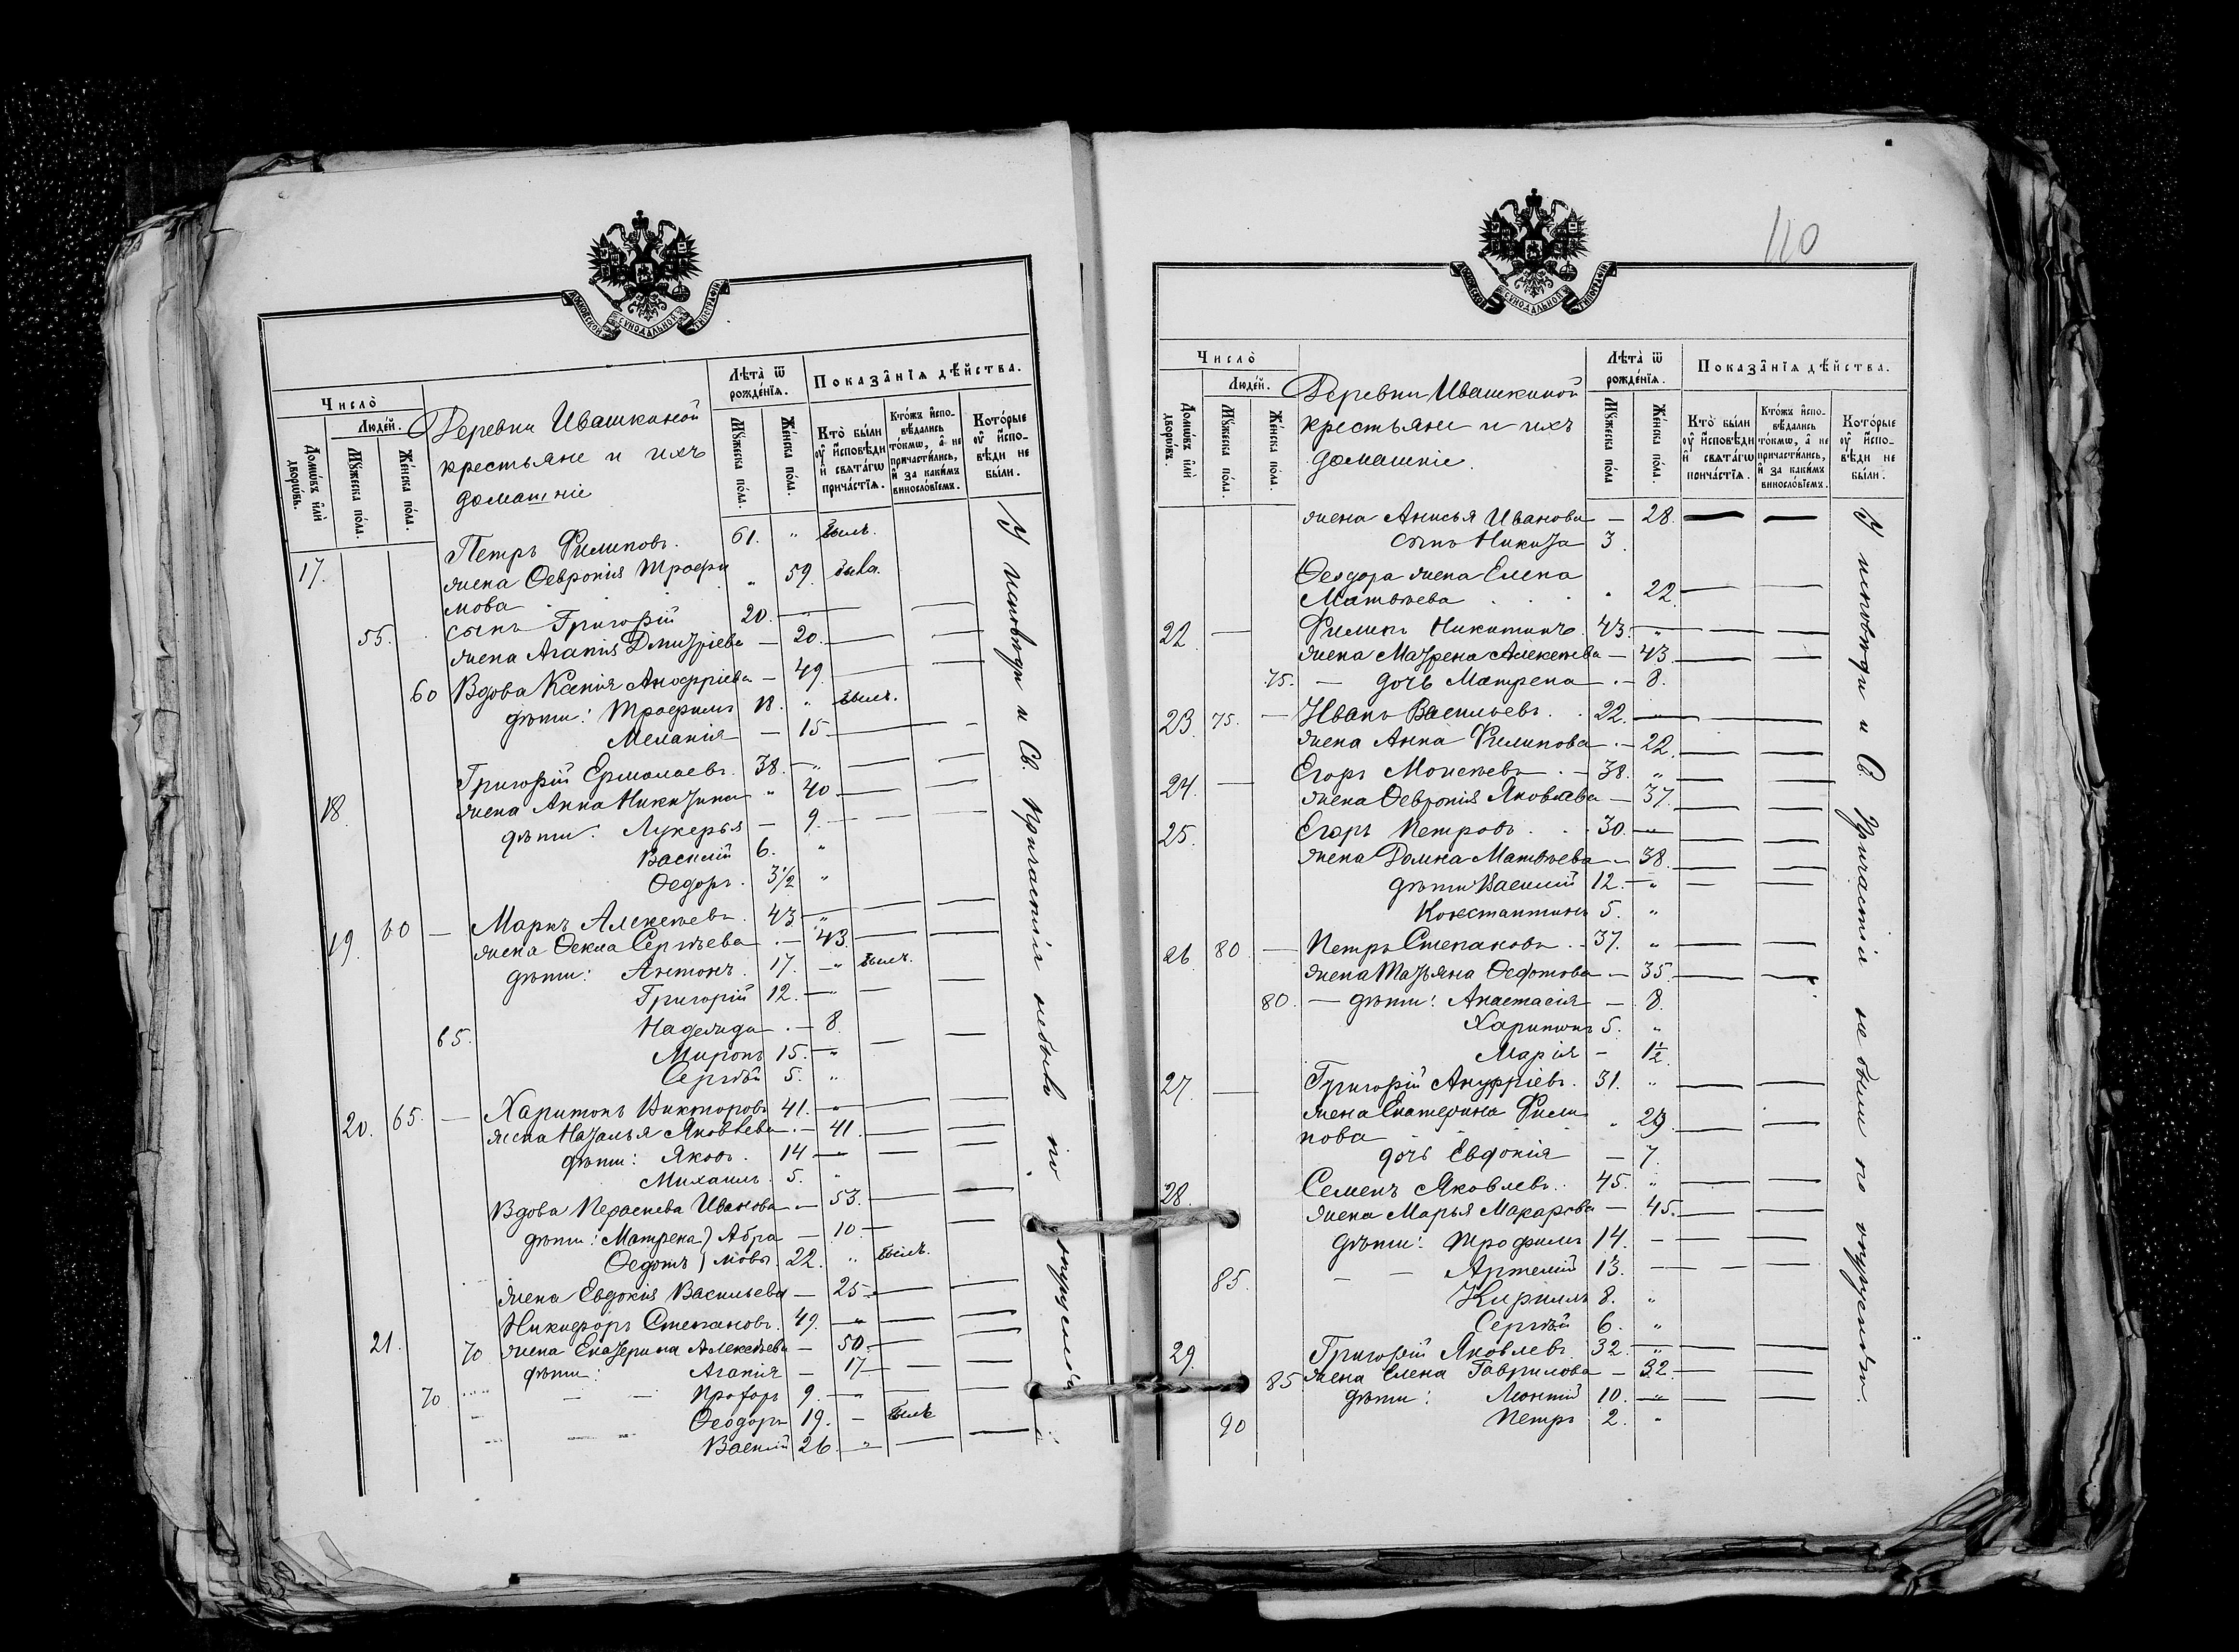 МОСКОВСКОЙ СѴНОДАЛЬНОЙ ТИПОГРАФІИ
Число̀
Людей.
Домѡвъ или дворовъ.
Мꙋжеска пола.
Женска пола.
Деревни Ивашкиной
крестьяне и ихъ
домашніе
Лѣта ѿ рожденїѧ.
Мꙋжеска пола.
Женска пола.
Показанїѧ дѣйства.
Кто были ᲂу҆ исповѣди и свѧтагѡ причастїѧ.
Ктожъ исповѣдались токмѡ, а не причастились, и за какимъ винословїемъ.
Которые ᲂу҆ исповѣди не были.
17. Петръ Филиповъ. 61. " былъ.
жена Ѳевронія Трофи
мова " 59. была.
55. сынъ Григорій 20. — "
жена Агапія Дмитріева — 20.
60 Вдова Ксенія Аноѳріева — 49.
дѣти: Трофимъ 18. " былъ.
Меланія — 15.
18. Григорій Ермолаевъ. 38. — "
жена Анна Никитина " 40.
дѣти: Лукерья — 9.
Василій 6. "
Ѳедоръ. 3½ "
19. 60 — Маркъ Алексѣевъ. 43 "
жена Ѳекла Сергѣева. — 43.
дѣти: Антонъ. 17. — " былъ.
Григорій 12. — "
65. Надежда. — 8.
Миронъ 15. — "
Сергѣй 5. "
20. 65. — Харитонъ Викторовъ 41. — "
жена Наталья Яковлева. — 41.
дѣти: Яковъ. 14 — "
Михаилъ. 5. "
Вдова Параскева Иванова — 53.
дѣти: Матрена) Абра — 10.
Ѳедотъ) мовы. 22. " былъ.
жена Евдокія Васильева — 25
21. Никифоръ Степановъ. 49. — "
70 жена Екатерина Алексѣева — 50.
дѣти: Агапія — 17
70 Прохоръ 9. — "
Ѳеодоръ 19. — былъ
Василій 26. — "
У исповѣди и Св. Причастія небыли по опущенію
110
МОСКОВСКОЙ СѴНОДАЛЬНОЙ ТИПОГРАФІИ
Число̀
Людей.
Домѡвъ или дворовъ.
Мꙋжеска пола.
Женска пола.
Деревни Ивашкиной
крестьяне и ихъ
домашніе.
Лѣта ѿ рожденїѧ.
Мꙋжеска пола
Женска пола.
Показанїѧ дѣйства.
Кто были ᲂу҆ исповѣди и свѧтагѡ причастїѧ.
Ктожъ исповѣдались токмѡ, а не причастились, и за какимъ винословїемъ.
Которые ᲂу҆ исповѣди не были.
жена Анисья Иванова — 28.
сынъ Никита 3.
Ѳеодора жена Елена
Матвѣева . . . " 22.
22 — Филипъ Никитинъ. 43. — "
жена Матрена Алексѣева — 43
75. — дочь Матрена — . — 8.
23. 75. — Иванъ Васильевъ. . 22. "
жена Анна Филипова — . — 22.
24. — Егоръ Моисѣевъ . — 38. "
жена Ѳевронія Яковлева — 37.
25. Егоръ Петровъ . . . 30. — "
жена Домна Матвѣева — 38.
дѣти Василій 12. — "
Константинъ 5. "
26. 80. — Петръ Степановъ . — 37. "
жена Татьяна Ѳедотова — 35.
80. — дѣти: Анастасія — 8.
Харитонъ 5. "
Марія — 1½
27. — Григорій Ануфріевъ. 31. "
жена Екатерина Фили
пова . . . " 29.
дочь Евдокія — 7.
28. Семенъ Яковлевъ. 45. "
жена Марья Макарова — 45.
дѣти: Трофимъ 14. —
85. — — Артемій 13. —
Кирилъ 8. "
Сергѣй 6. "
29. Григорій Яковлевъ. 32. — "
85 жена Елена Гаврилова — 32.
дѣти: Леонтій 10. — "
90 Петръ 2. "
У исповѣди и Св. Причастія не были по опущенію.